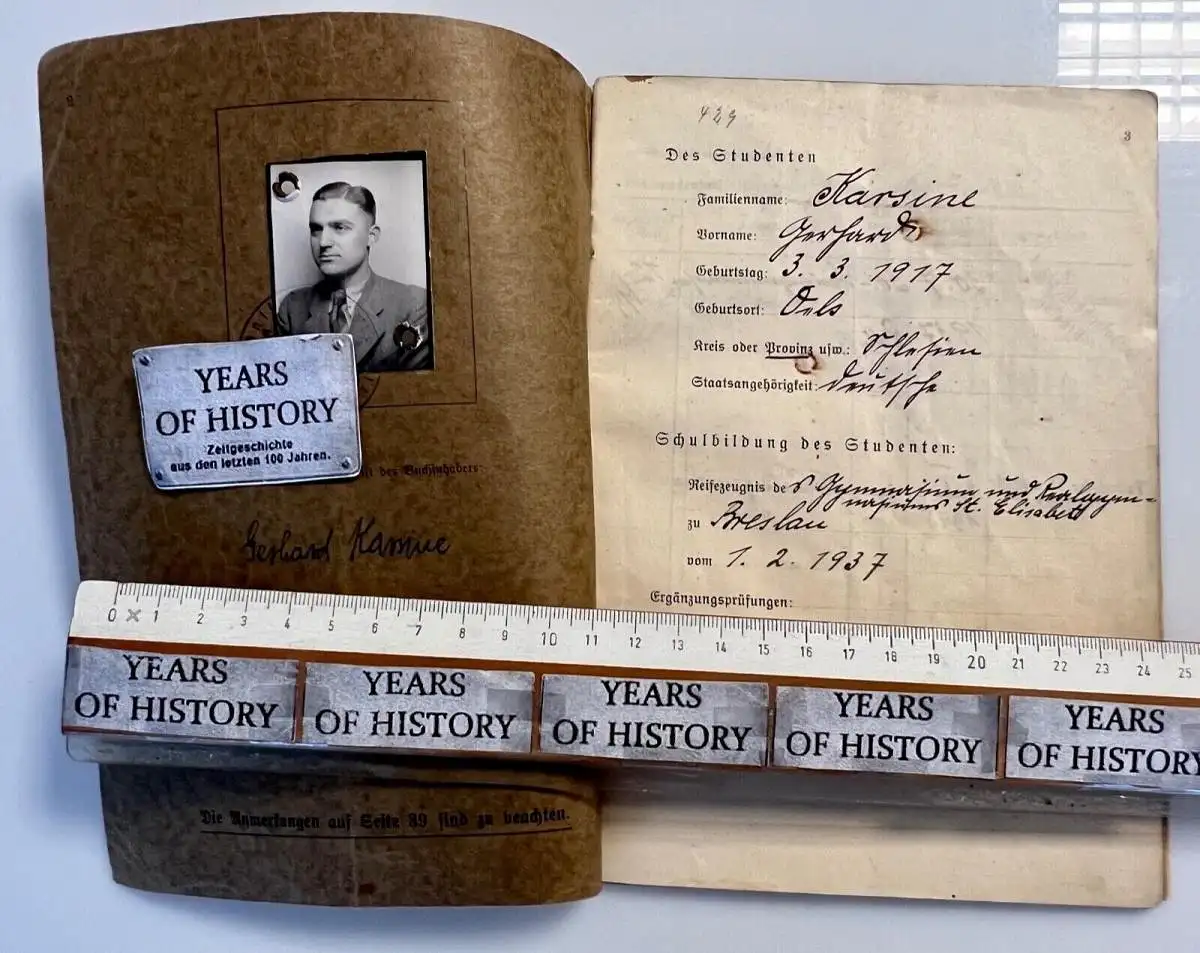 2
YEARS
OF HISTORY
Zeitgeschichte
aus den letzten 100 Jahren.
des Buchinhabers
Gerhard Karsine
Die Anmerkungen auf Seite 39 sind zu beachten.
429
3
Des Studenten
Familienname: Karsine
Vorname: Gerhard
Geburtstag: 3. 3. 1917
Geburtsort: Oels
Kreis oder Provinz usw.: Schlesien
Staatsangehörigkeit: deutsche
Schulbildung des Studenten:
Reifezeugnis des Gymnasium und Realgym-
nasiums St. Elisabeth
zu Breslau
vom 1. 2. 1937
Ergänzungsprüfungen:
0 1 2 3 4 5 6 7 8 9 10 11 12 13 14 15 16 17 18 19 20 21 22 23 24 25
YEARS
OF HISTORY
YEARS
OF HISTORY
YEARS
OF HISTORY
YEARS
OF HISTORY
YEARS
OF HISTORY